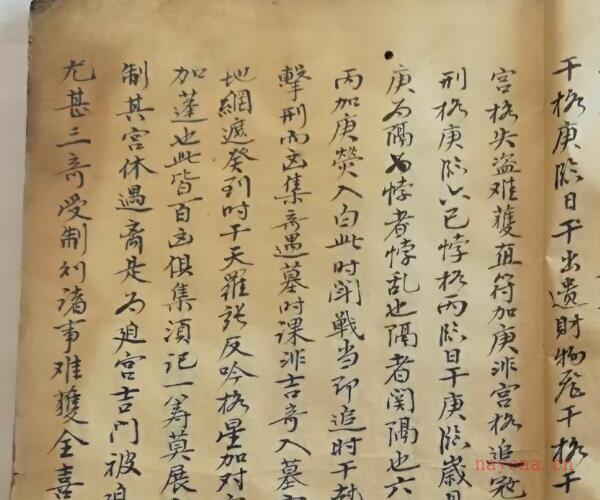 干格庚临日干出遺財物飛干格干
宮格失盗难獲直符加庚非宮格追寇
刑格庚临六己悖格丙临日干庚临歲
庚为隔丙悖者悖乱也隔者関隔也六
丙加庚熒入白此时鬥戰当即追时干
擊刑而凶集奇遇墓时課非吉奇入墓
地網遮癸到时干天羅張反吟格星加对
加蓬也此皆百凶俱集須记一筹莫展
制其宮休遇离是为廹宮吉門被
尤甚三奇受制列诸事难獲全喜
nayona.cn